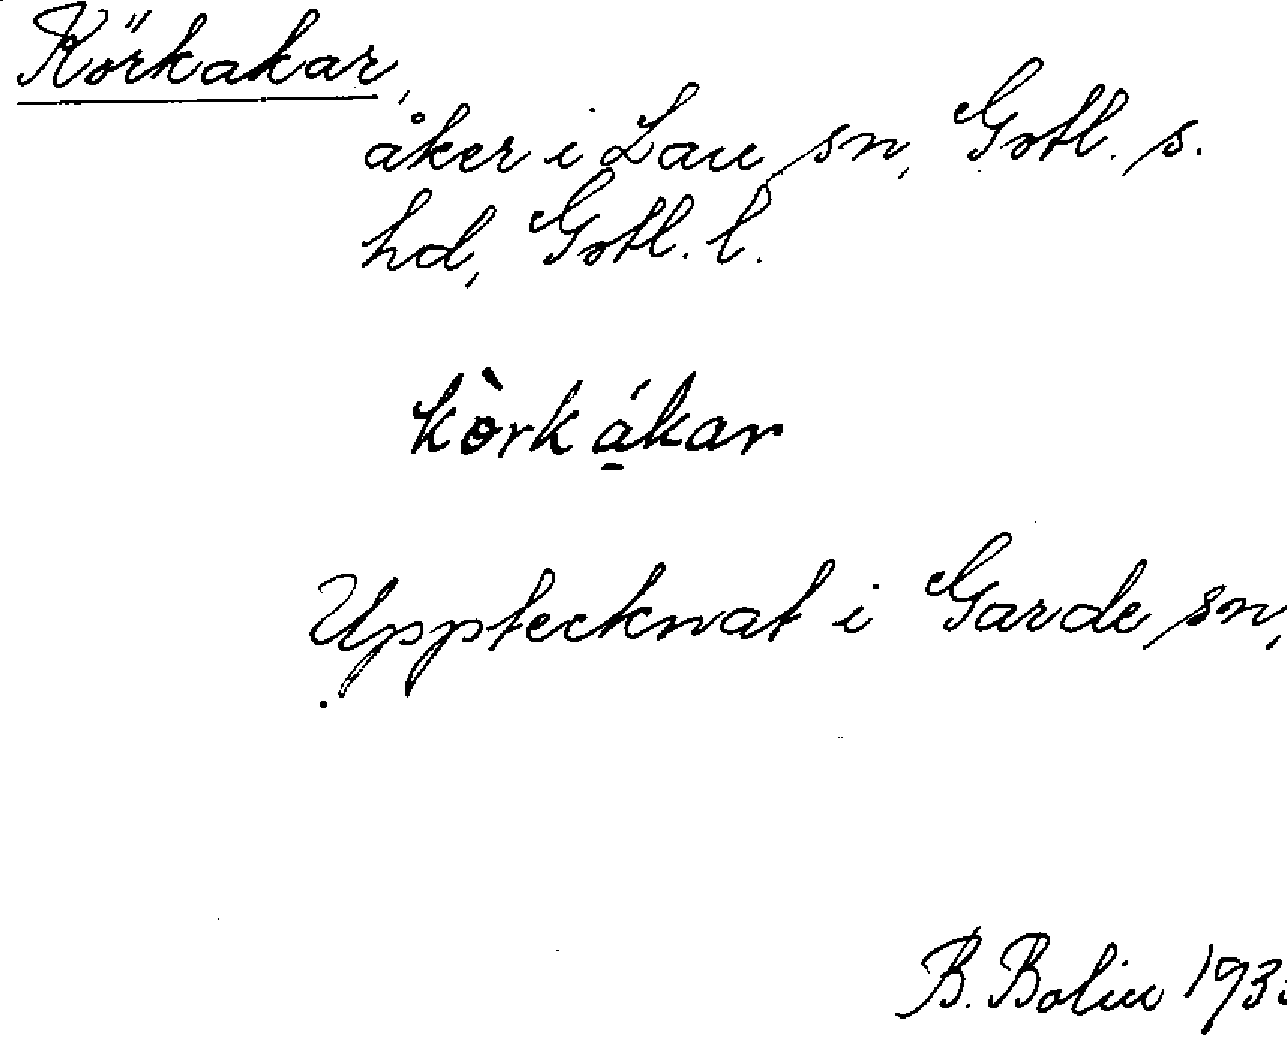 Körkakar,
åker i Lau sn, Gotl. s.
hd, Gotl. l.
kòrkákar
Upptecknat i Garde sn,
B. Bolin